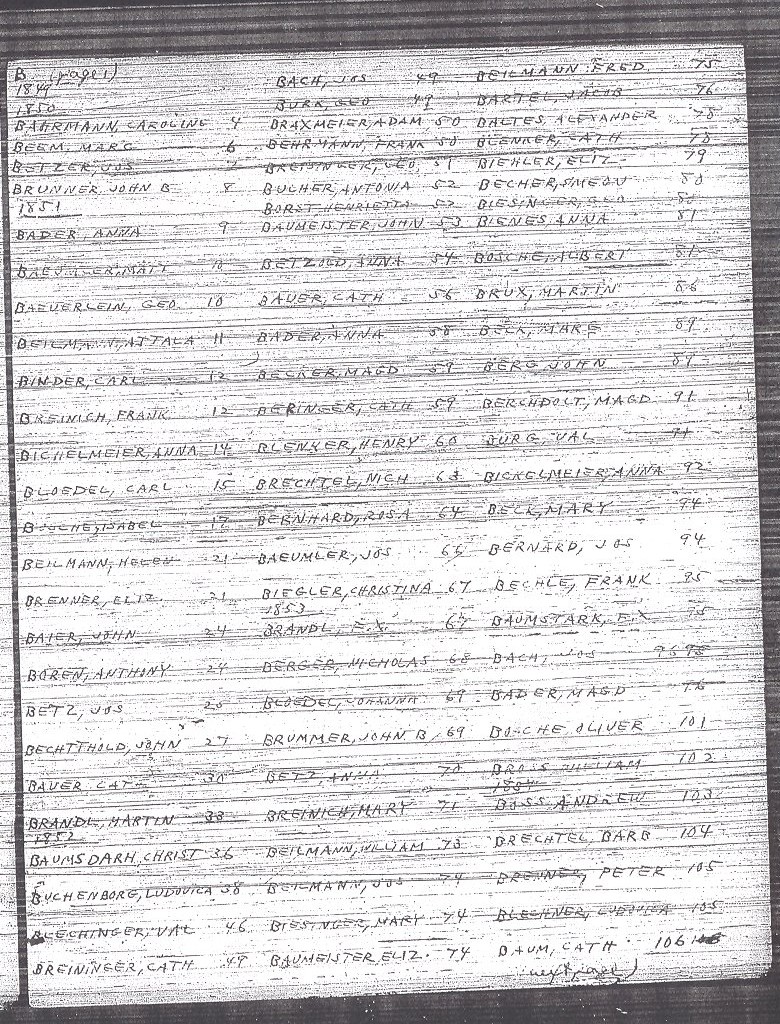 B (page 1)
1849
1850
BAHRMANN, CAROLINE 4
BEEM, MARG 6
BETZER, JOS 7
BRUNNER, JOHN B 8
1851
BADER, ANNA 9
BAEUMLER, MATT 10
BAEUERLEIN, GEO. 10
BEILMANN, ATTALA 11
BINDER, CARL 12
BREINICH, FRANK 12
BICHELMEIER, ANNA 14
BLOEDEL, CARL 15
BOSCHE, ISABEL 17
BEILMANN, HELEN 21
BRENNER, ELIZ 21
BAIER, JOHN 24
BOREN, ANTHONY 24
BETZ, JOS 25
BECHTTHOLD, JOHN 27
BAUER, CATH 30
BRANDL, MARTIN 33
1852
BAUMSDARH, CHRIST 36
BUCHENBORG, LUDOVICA 38
BLECHINGER, VAL 46
BREININGER, CATH 49
BACH, JOS 49
BURK, GEO 49
BRAXMEIER, ADAM 50
BEHRMANN, FRANK 50
BREISINGER, GEO. 51
BUCHER, ANTONIA 52
BORST, HENRIETTA 52
BAUMEISTER, JOHN 53
BETZOLD, ANNA 54
BAUER, CATH 56
BADER, ANNA 58
BECKER, MAGD 59
BERINGER, CATH 59
BLENKER, HENRY 60
BRECHTEL, NICH 63
BERNHARD, ROSA 64
BAEUMLER, JOS 66
BIEGLER, CHRISTINA 67
1853
BRANDL, F.X. 67
BERGER, NICHOLAS 68
BLOEDEL, JOHANNA 69
BRUMMER, JOHN B. 69
BETZ, ANNA 70
BREINICH, MARY 71
BEILMANN, WILLIAM 73
BEILMANN, JOS 74
BIESINGER, MARY 74
BAUMEISTER, ELIZ. 74
BEILMANN FRED 75
BARTEL, JACOB 76
BALTES, ALEXANDER 78
BLENKER, CATH 78
BIEHLER, ELIZ 79
BECHER, SIMEON 80
BIESINGER, GEO 80
BIENES, ANNA 81
BOSCHE, ALBERT 81
BRUX, MARTIN 86
BECK, MARG 89
BERG, JOHN 89
BERCHDOLT, MAGD 91
BURG, VAL 91
BICKELMEIER, ANNA 92
BECK, MARY 94
BERNARD, JOS 94
BECHLE, FRANK 95
BAUMSTARK, F.X 95
BACH, JOS 96
BADER, MAGD
BOSCHE OLIVER 101
BROSS WILLIAM 102
1854
BOSS, ANDREW 103
BRECHTEL, BARB 104
BRENNER, PETER 105
BLECHNER, LUDOVICA 105
BAUM, CATH 106
(next page)